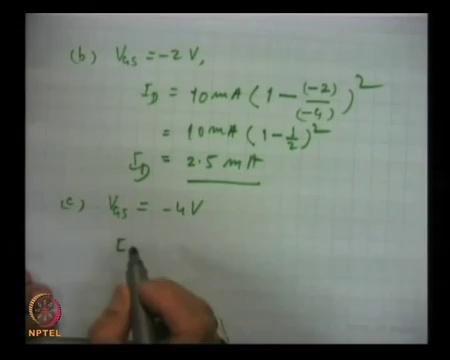 (b) VGS = -2 V,
ID = 10 mA ( 1 - (-2)/(-4) )²
= 10 mA ( 1 - 1/2 )²
ID = 2.5 mA
(c) VGS = -4V
I
NPTEL